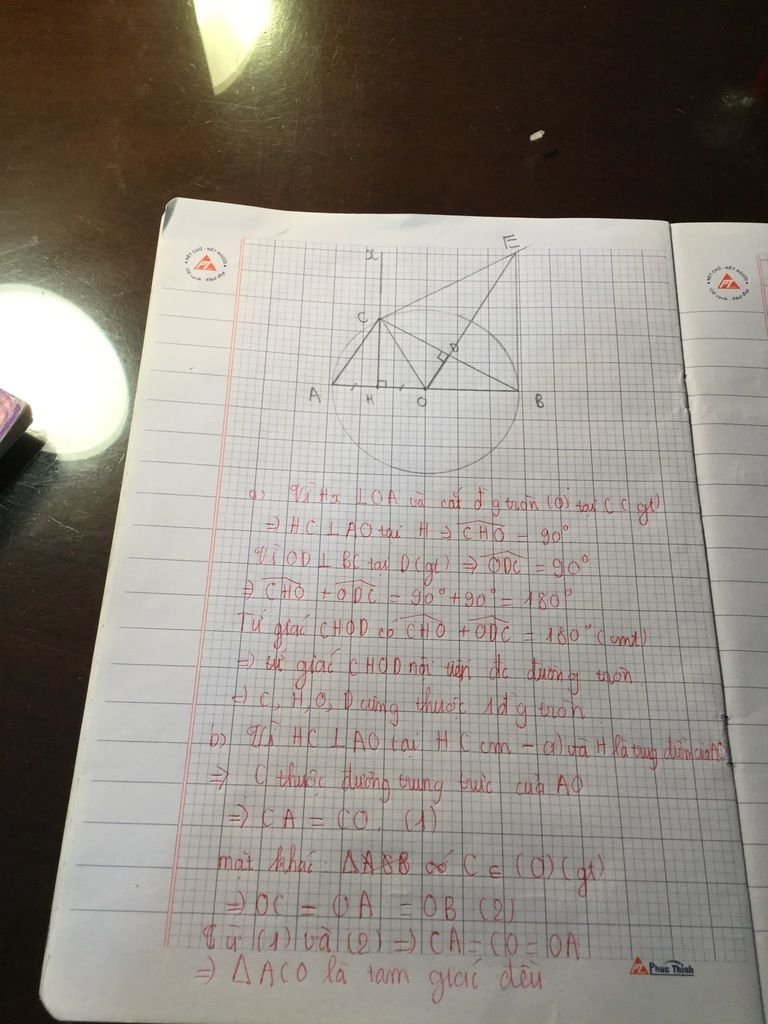 NÉT CHỮ - NẾT NGƯỜI
NÉT CHỮ - NẾT NGƯỜI
x
E
C
D
A
H
O
B
a) Vì Hx ⊥ OA và cắt đg tròn (O) tại C (gt)
⇒ HC ⊥ AO tại H ⇒ CHO = 90°
Vì OD ⊥ BC tại D (gt) ⇒ ODC = 90°
⇒ CHO + ODC = 90° + 90° = 180°
Tứ giác CHOD có CHO + ODC = 180° (cmt)
⇒ tứ giác CHOD nội tiếp đc đường tròn
⇒ C, H, O, D cùng thuộc 1 đg tròn
b) Vì HC ⊥ AO tại H (cm - a) và H là trung điểm của AO
⇒ C thuộc đường trung trực của AO
⇒ CA = CO. (1)
mặt khác C ∈ (O) (gt)
⇒ OC = OA = OB (2)
Từ (1) và (2) ⇒ CA = CO = OA
⇒ Δ ACO là tam giác đều
Phúc Thịnh